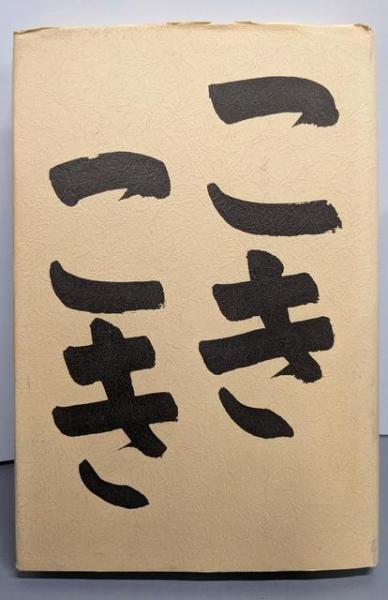 こき
こき